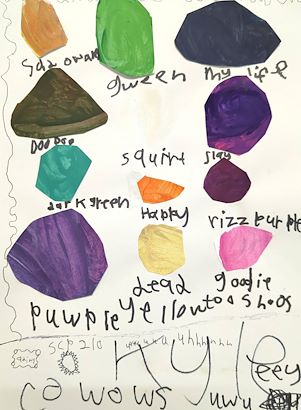 sad orange
gween
my life
Doo Doo
squirt
slay
dark green
Happy
rizz purple
Dead
goodie
puwple
yellow
too shoos
scp 210
KYLE
cowows
uwu